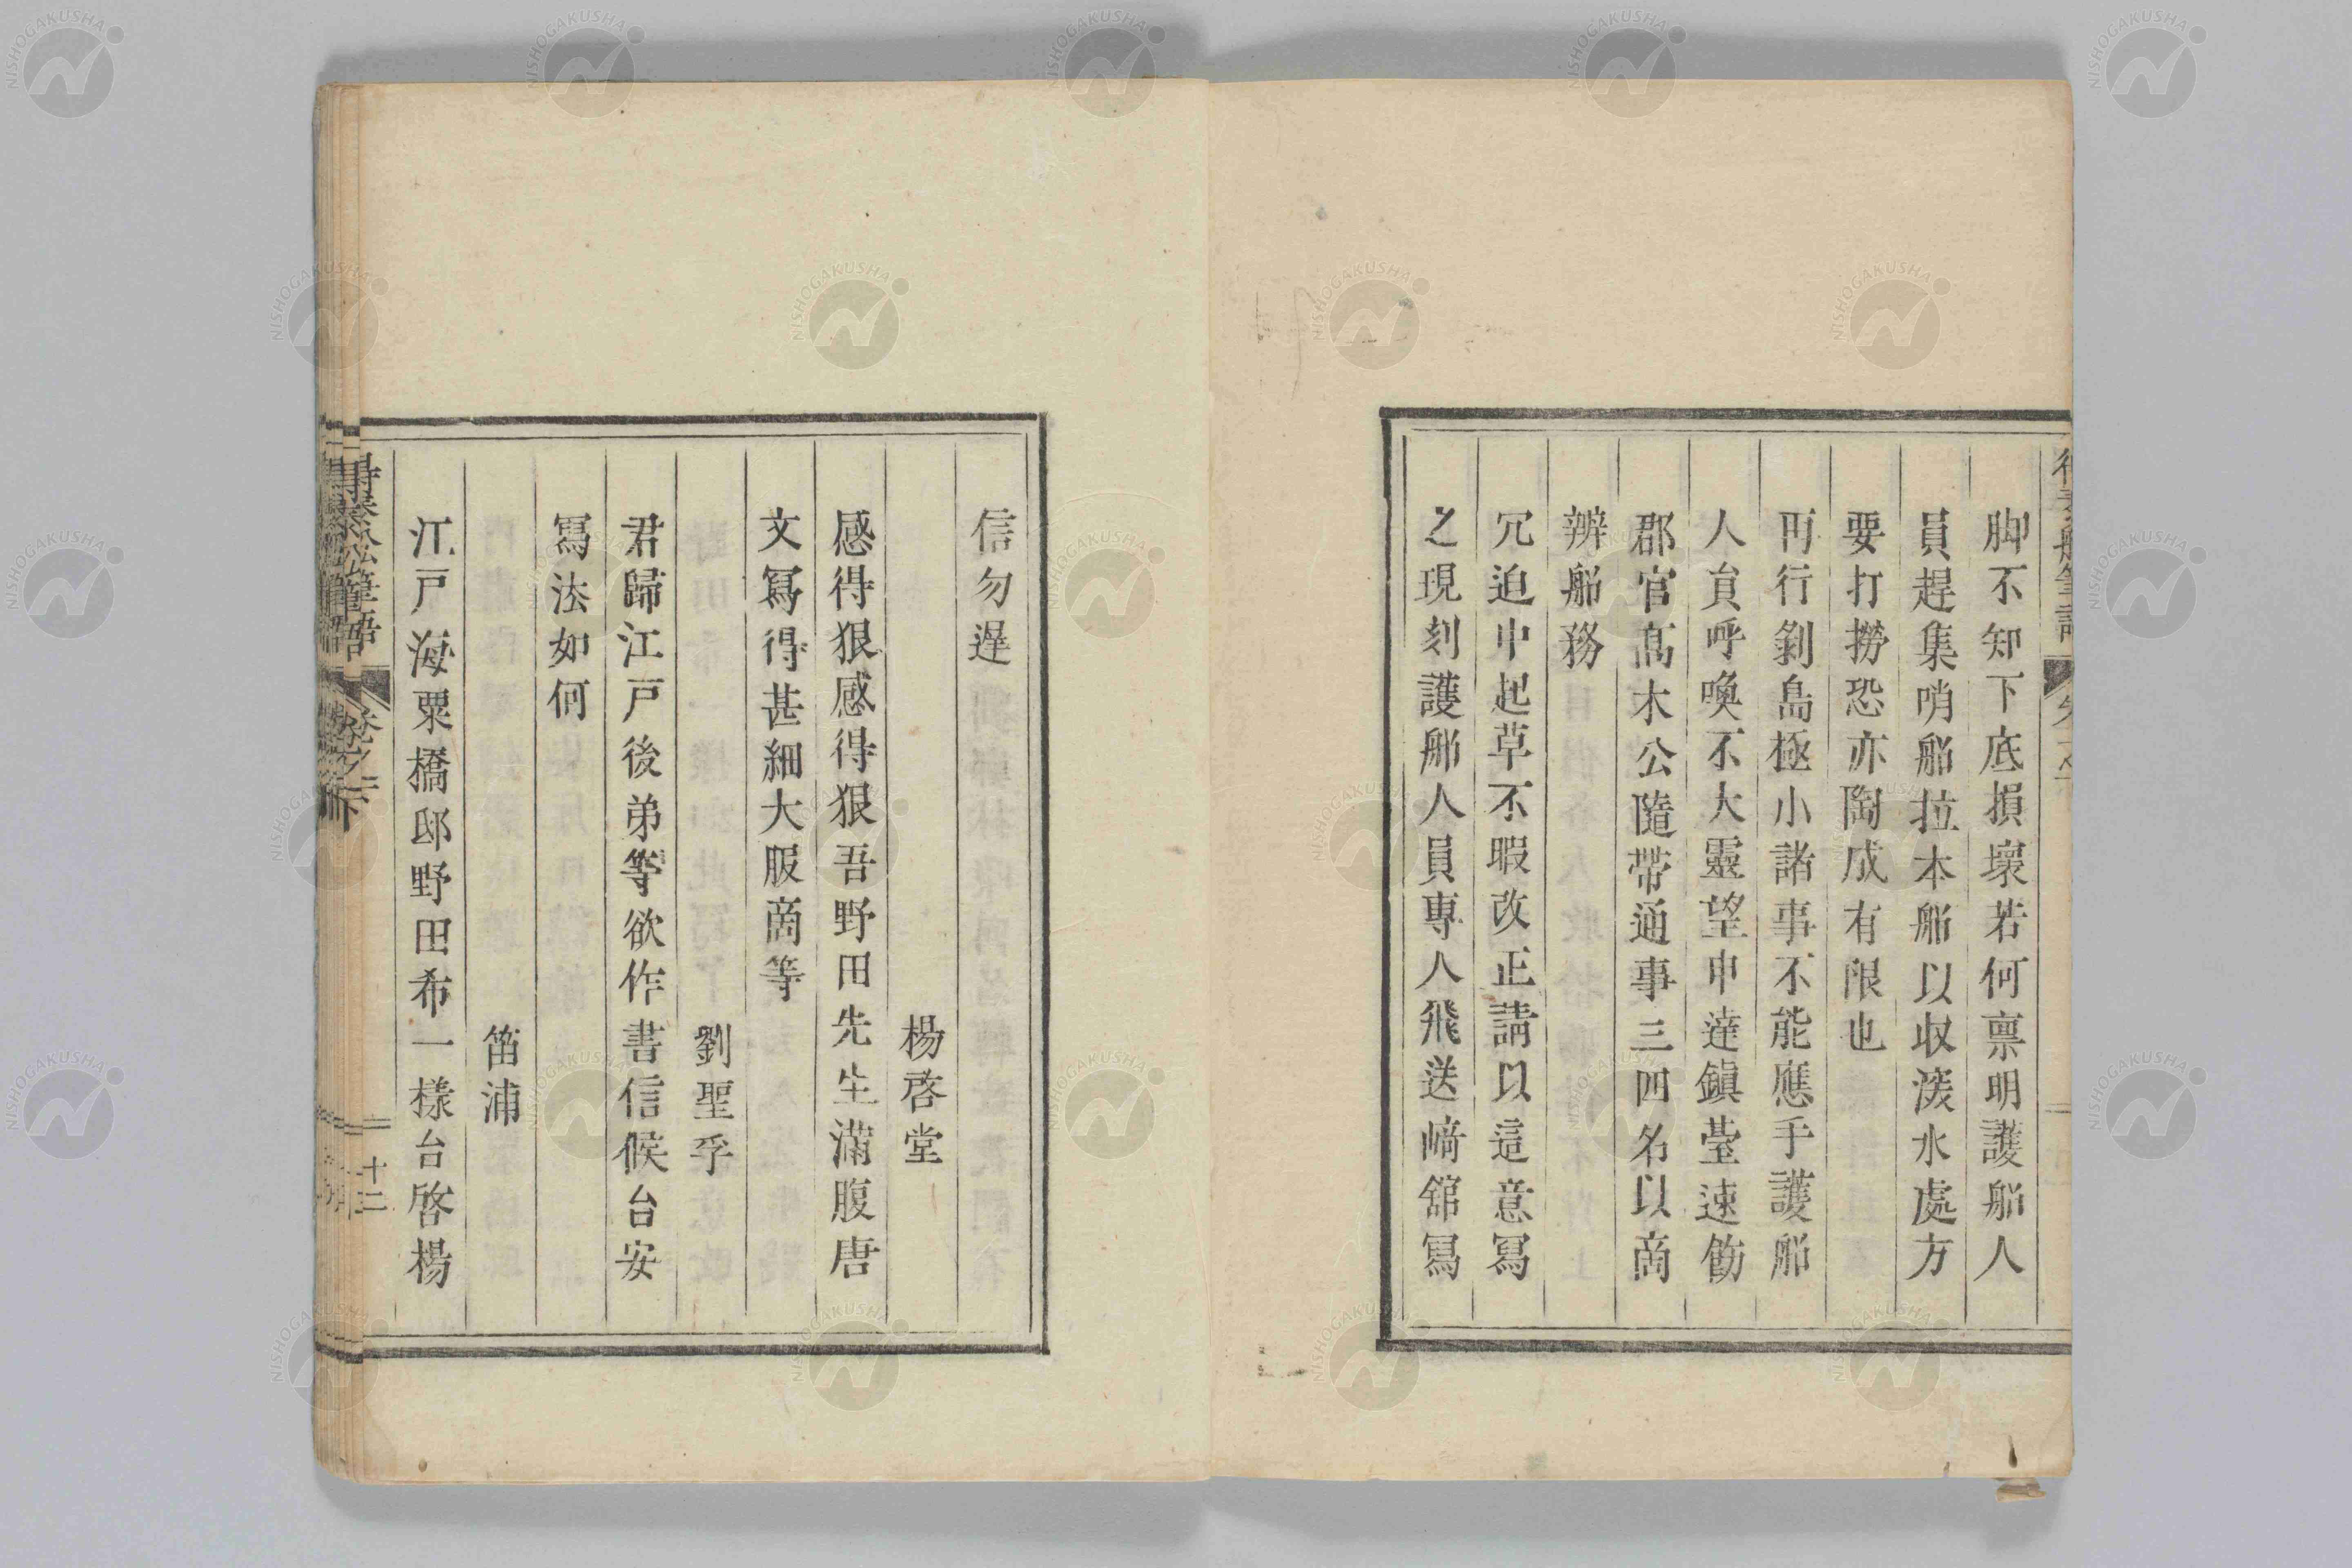 脚不知下底損壞若何禀明護船人
員趕集哨船拉本船以収淡水處方
要打撈恐亦陶成有限也
再行剝島極小諸事不能應手護船
人負呼喚不大靈望申達鎭䑓速飭
郡官髙木公隨帶通事三四名以啇
辨船務
冗迫中起草不暇改正請以這意冩
之現刻護船人員専人飛送﨑舘冩
信勿遅
楊啓堂
感得狠感得狠吾野田先生滿腹唐
文冩得甚細大服啇等
劉聖孚
君歸江戸後弟等欲作書信候台安
冩法如何
笛浦
江戸海粟橋邸野田希一樣台啓楊
得泰船筆語
卷之二下
十二
NISHOGAKUSHA